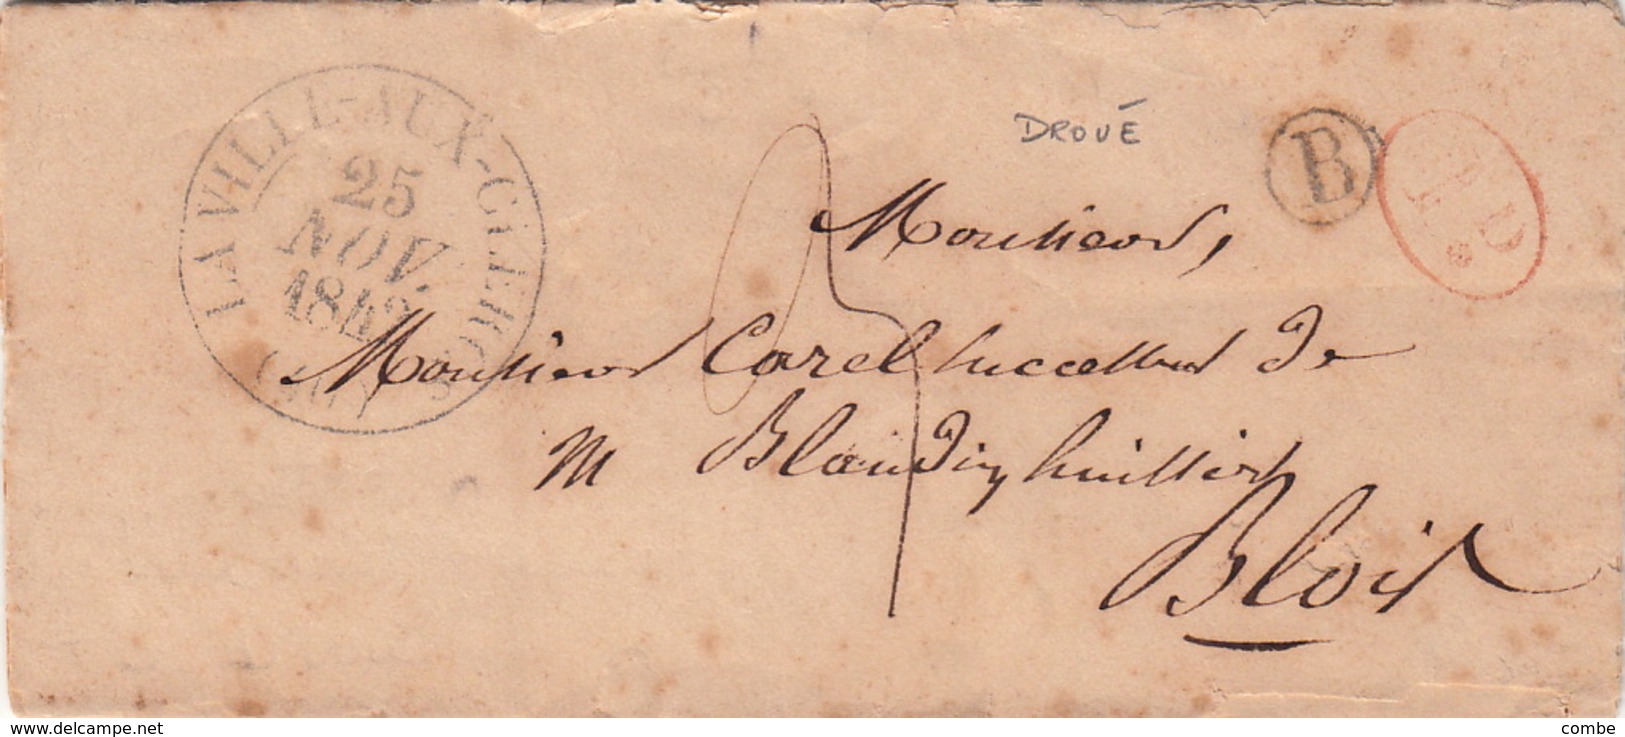 LA VILLE-AUX-CLERCS
25
NOV.
1842
(40)
DROUÉ
B
D
Monsieur,
Monsieur Carel successeur de
m Blandin, huissier
Blois
delcampe.net
combe